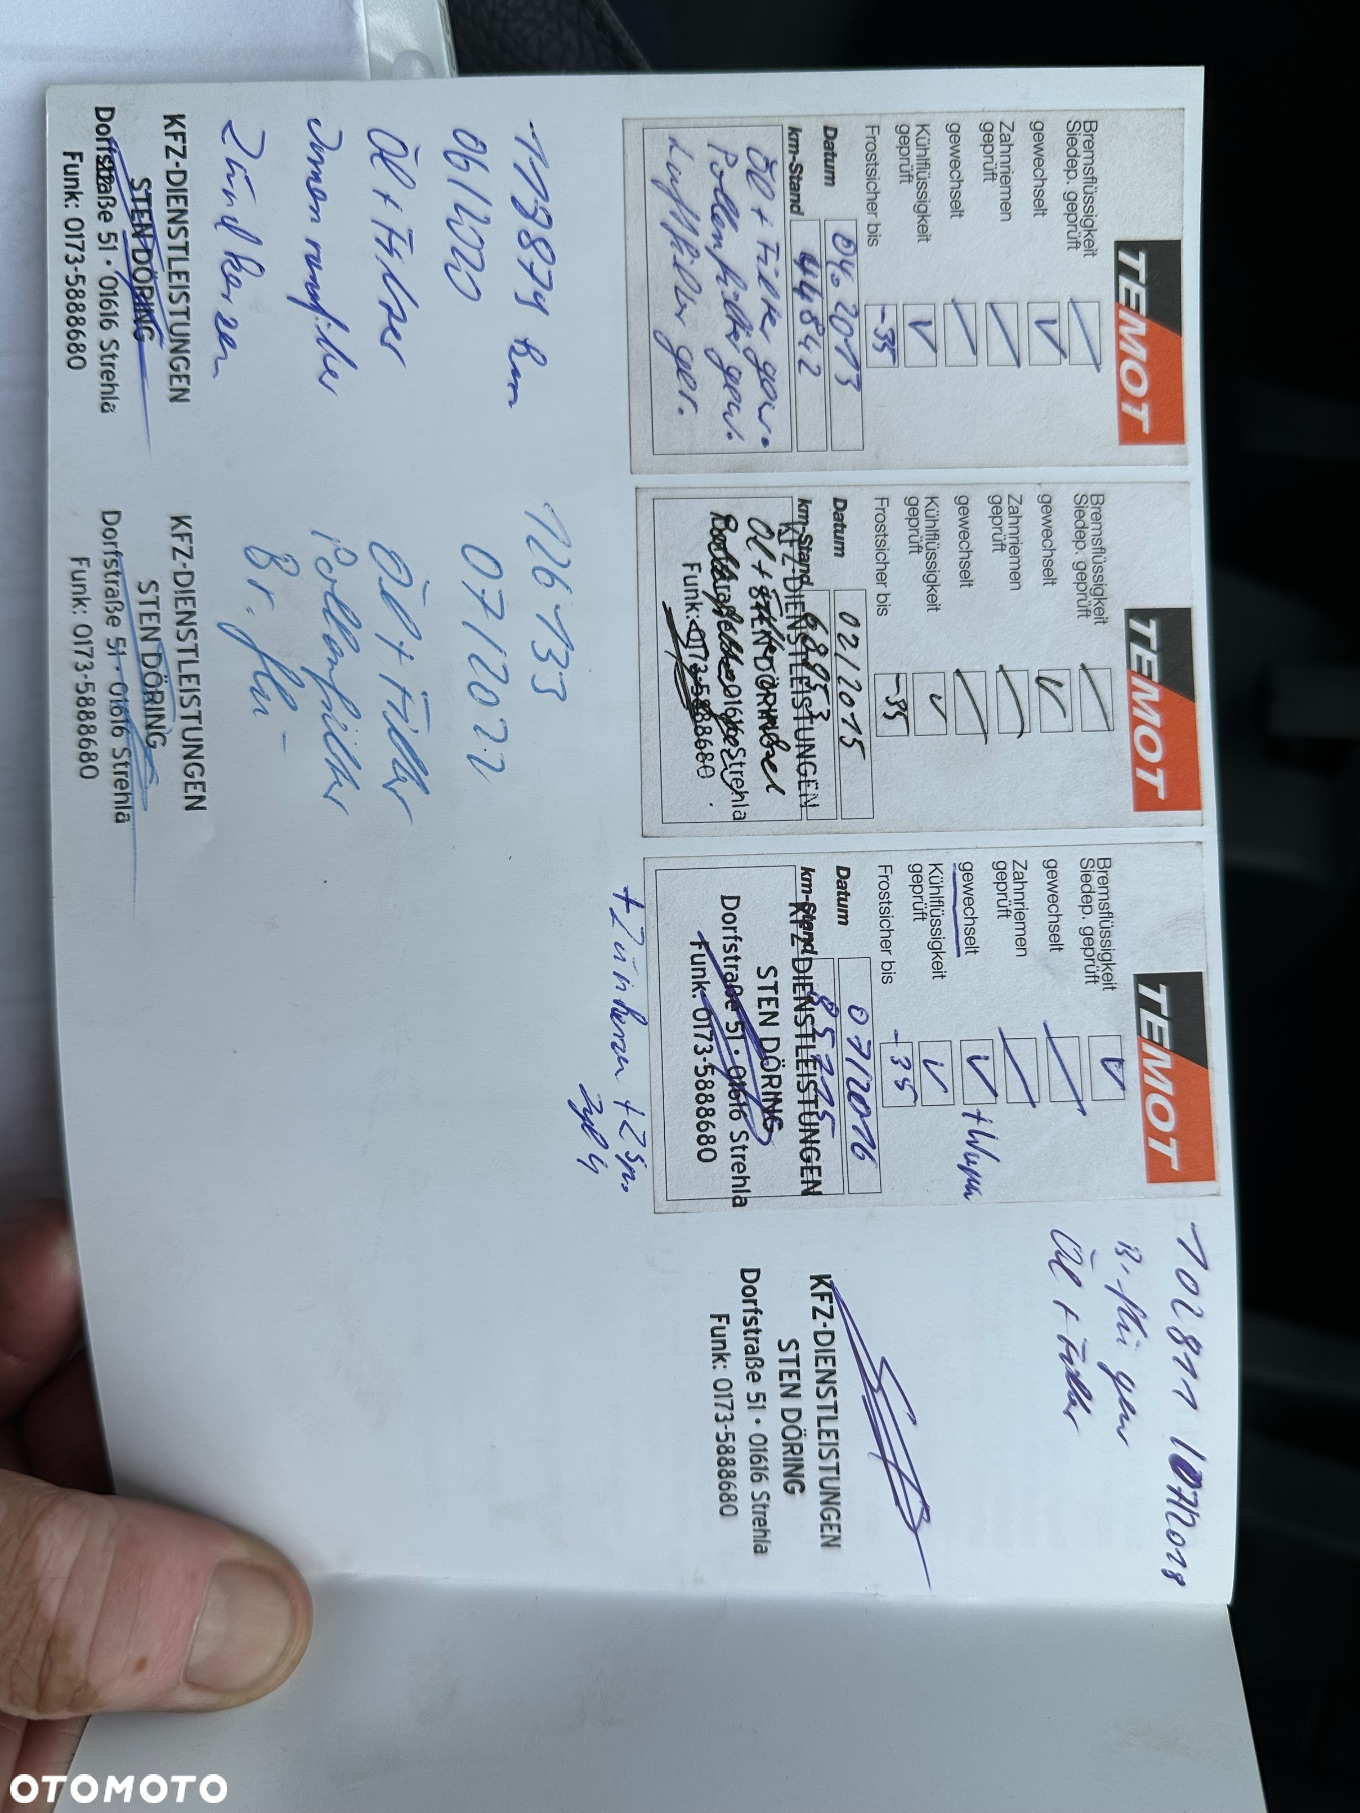 TEMOT
Bremsflüssigkeit
Siedep. geprüft
gewechselt
Zahnriemen
geprüft
gewechselt
Kühlflüssigkeit
geprüft
Frostsicher bis -35
Datum 04.2013
km-Stand 44842
Öl + Filter gew.
Pollenfilter gew.
Luftfilter ger.
TEMOT
Bremsflüssigkeit
Siedep. geprüft
gewechselt
Zahnriemen
geprüft
gewechselt
Kühlflüssigkeit
geprüft
Frostsicher bis -35
Datum 02/2015
km-Stand
Öl +
KFZ-DIENSTLEISTUNGEN
STEN DÖRING
Strehla
Funk: 0173-5888680
TEMOT
Bremsflüssigkeit
Siedep. geprüft
gewechselt
Zahnriemen
geprüft
gewechselt + Wapu
Kühlflüssigkeit
geprüft
Frostsicher bis -35
Datum 07/2016
km-Stand 85275
KFZ-DIENSTLEISTUNGEN
STEN DÖRING
Dorfstraße 51 • 01616 Strehla
Funk: 0173-5888680
+ Zünkerzen + Zsp.
Zyl 4
102811 107/2018
Br. flü gew
Öl + Filter
KFZ-DIENSTLEISTUNGEN
STEN DÖRING
Dorfstraße 51 • 01616 Strehla
Funk: 0173-5888680
119874 km
06/2020
Öl + Filter
Innenraumfilter
Zündkerzen
KFZ-DIENSTLEISTUNGEN
STEN DÖRING
Dorfstraße 51 • 01616 Strehla
Funk: 0173-5888680
126133
07/2022
Öl + Filter
Pollenfilter
Br. flü-
KFZ-DIENSTLEISTUNGEN
STEN DÖRING
Dorfstraße 51 • 01616 Strehla
Funk: 0173-5888680
OTOMOTO